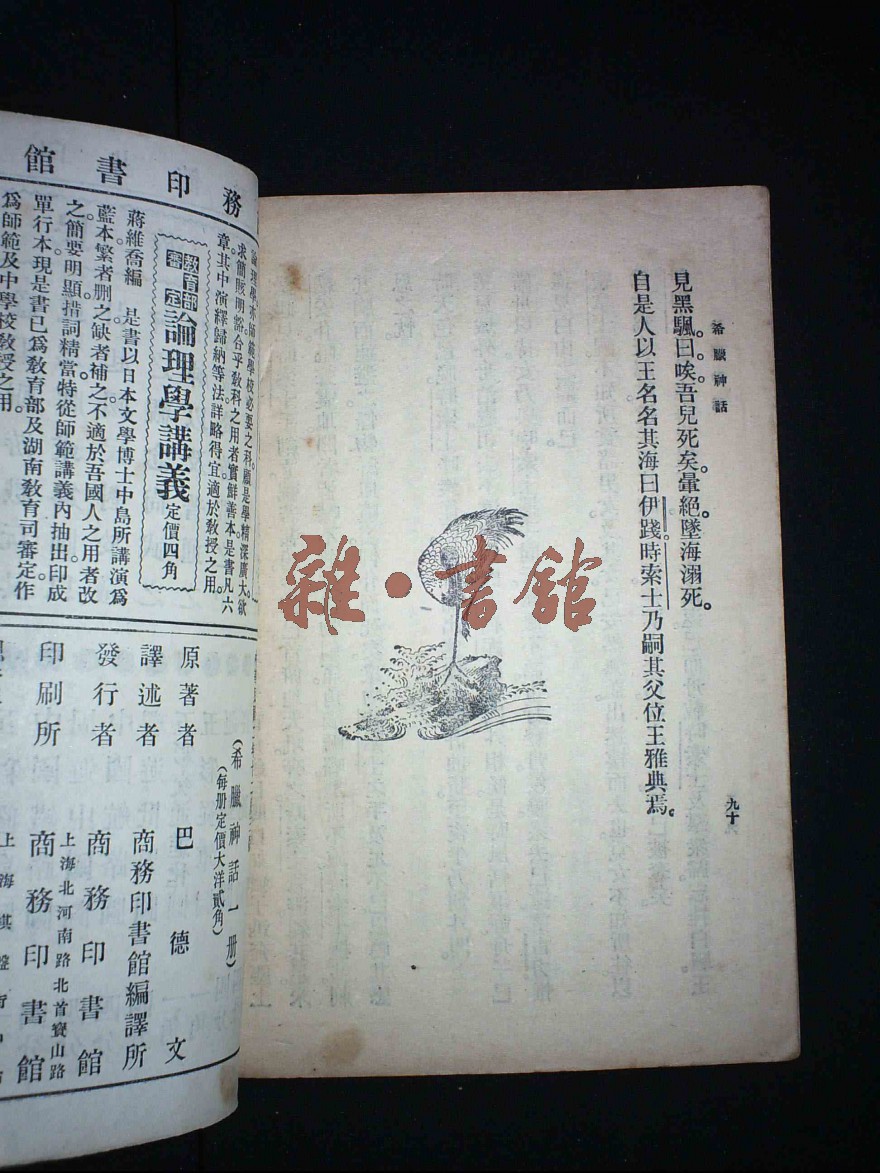 希臘神話
見黑颿。曰。唉。吾兒死矣。暈絕。墜海溺死。
自是人以王名名其海曰伊踐時索士乃嗣其父位王雅典焉。
九十
雜·書館
務印書館
論理學本師範學校必要之科。顧是學精深廣大。欲
求簡賅明豁合乎敎科之用者實鮮善本是書凡六
章其中演繹歸納等法詳略得宜適於敎授之用。
敎育部
審定
論理學講義
定價四角
蔣維喬編 是書以日本文學博士中島所講演爲
藍本繁者刪之缺者補之不適於吾國人之用者改
之簡要明顯措詞精當特從師範講義內抽出印成
單行本現是書已爲敎育部及湖南敎育司審定作
爲師範及中學校敎授之用。
(希臘神話一册)
(每册定價大洋貳角)
原著者 巴德文
譯述者 商務印書館編譯所
發行者 商務印書館
上海北河南路北首寶山路
印刷所 商務印書館
上海棋盤街中